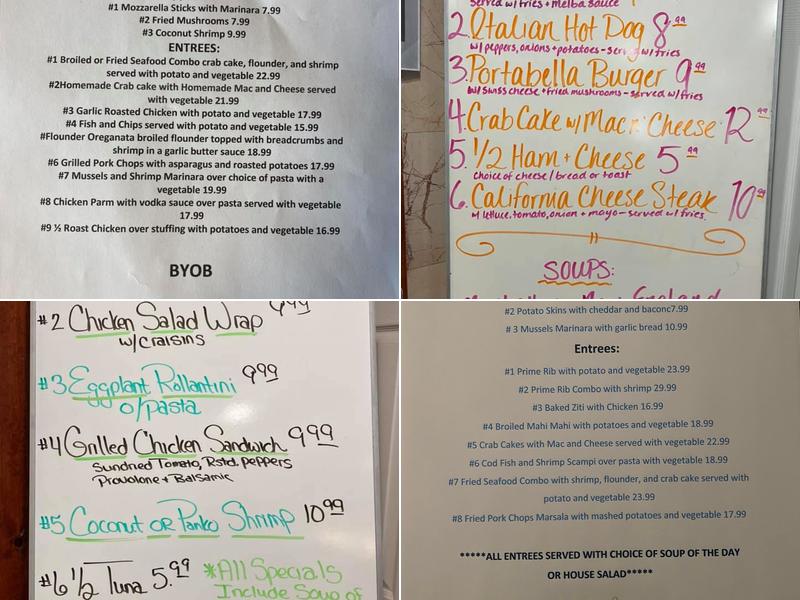 #1 Mozzarella Sticks with Marinara 7.99
#2 Fried Mushrooms 7.99
#3 Coconut Shrimp 9.99
ENTREES:
#1 Broiled or Fried Seafood Combo crab cake, flounder, and shrimp
served with potato and vegetable 22.99
#2Homemade Crab cake with Homemade Mac and Cheese served
with vegetable 21.99
#3 Garlic Roasted Chicken with potato and vegetable 17.99
#4 Fish and Chips served with potato and vegetable 15.99
#Flounder Oreganata broiled flounder topped with breadcrumbs and
shrimp in a garlic butter sauce 18.99
#6 Grilled Pork Chops with asparagus and roasted potatoes 17.99
#7 Mussels and Shrimp Marinara over choice of pasta with a
vegetable 19.99
#8 Chicken Parm with vodka sauce over pasta served with vegetable
17.99
#9 ½ Roast Chicken over stuffing with potatoes and vegetable 16.99
BYOB
served w/fries + melba sauce
2. Italian Hot Dog 8.99
w/peppers, onions + potatoes - served w/fries
3. Portabella Burger 9.99
w/swiss cheese + fried mushrooms - served w/fries
4. Crab Cake w/ Mac n' Cheese 12.99
5. 1/2 Ham + Cheese 5.99
choice of cheese/bread or toast
6. California Cheese Steak 10.99
w/ lettuce, tomato, onion + mayo - served w/fries.
SOUPS:
New England
#2 Chicken Salad Wrap 9.99
w/craisins
#3 Eggplant Rollantini 9.99
o/pasta
#4 Grilled Chicken Sandwich 9.99
Sundried Tomato, Rstd. Peppers
Provolone + Balsamic
#5 Coconut or Panko Shrimp 10.99
#6 1/2 Tuna 5.99
*All Specials
Include Soup of
#2 Potato Skins with cheddar and baconc7.99
# 3 Mussels Marinara with garlic bread 10.99
Entrees:
#1 Prime Rib with potato and vegetable 23.99
#2 Prime Rib Combo with shrimp 29.99
#3 Baked Ziti with Chicken 16.99
#4 Broiled Mahi Mahi with potatoes and vegetable 18.99
#5 Crab Cakes with Mac and Cheese served with vegetable 22.99
#6 Cod Fish and Shrimp Scampi over pasta with vegetable 18.99
#7 Fried Seafood Combo with shrimp, flounder, and crab cake served with
potato and vegetable 23.99
#8 Fried Pork Chops Marsala with mashed potatoes and vegetable 17.99
*****ALL ENTREES SERVED WITH CHOICE OF SOUP OF THE DAY
OR HOUSE SALAD*****